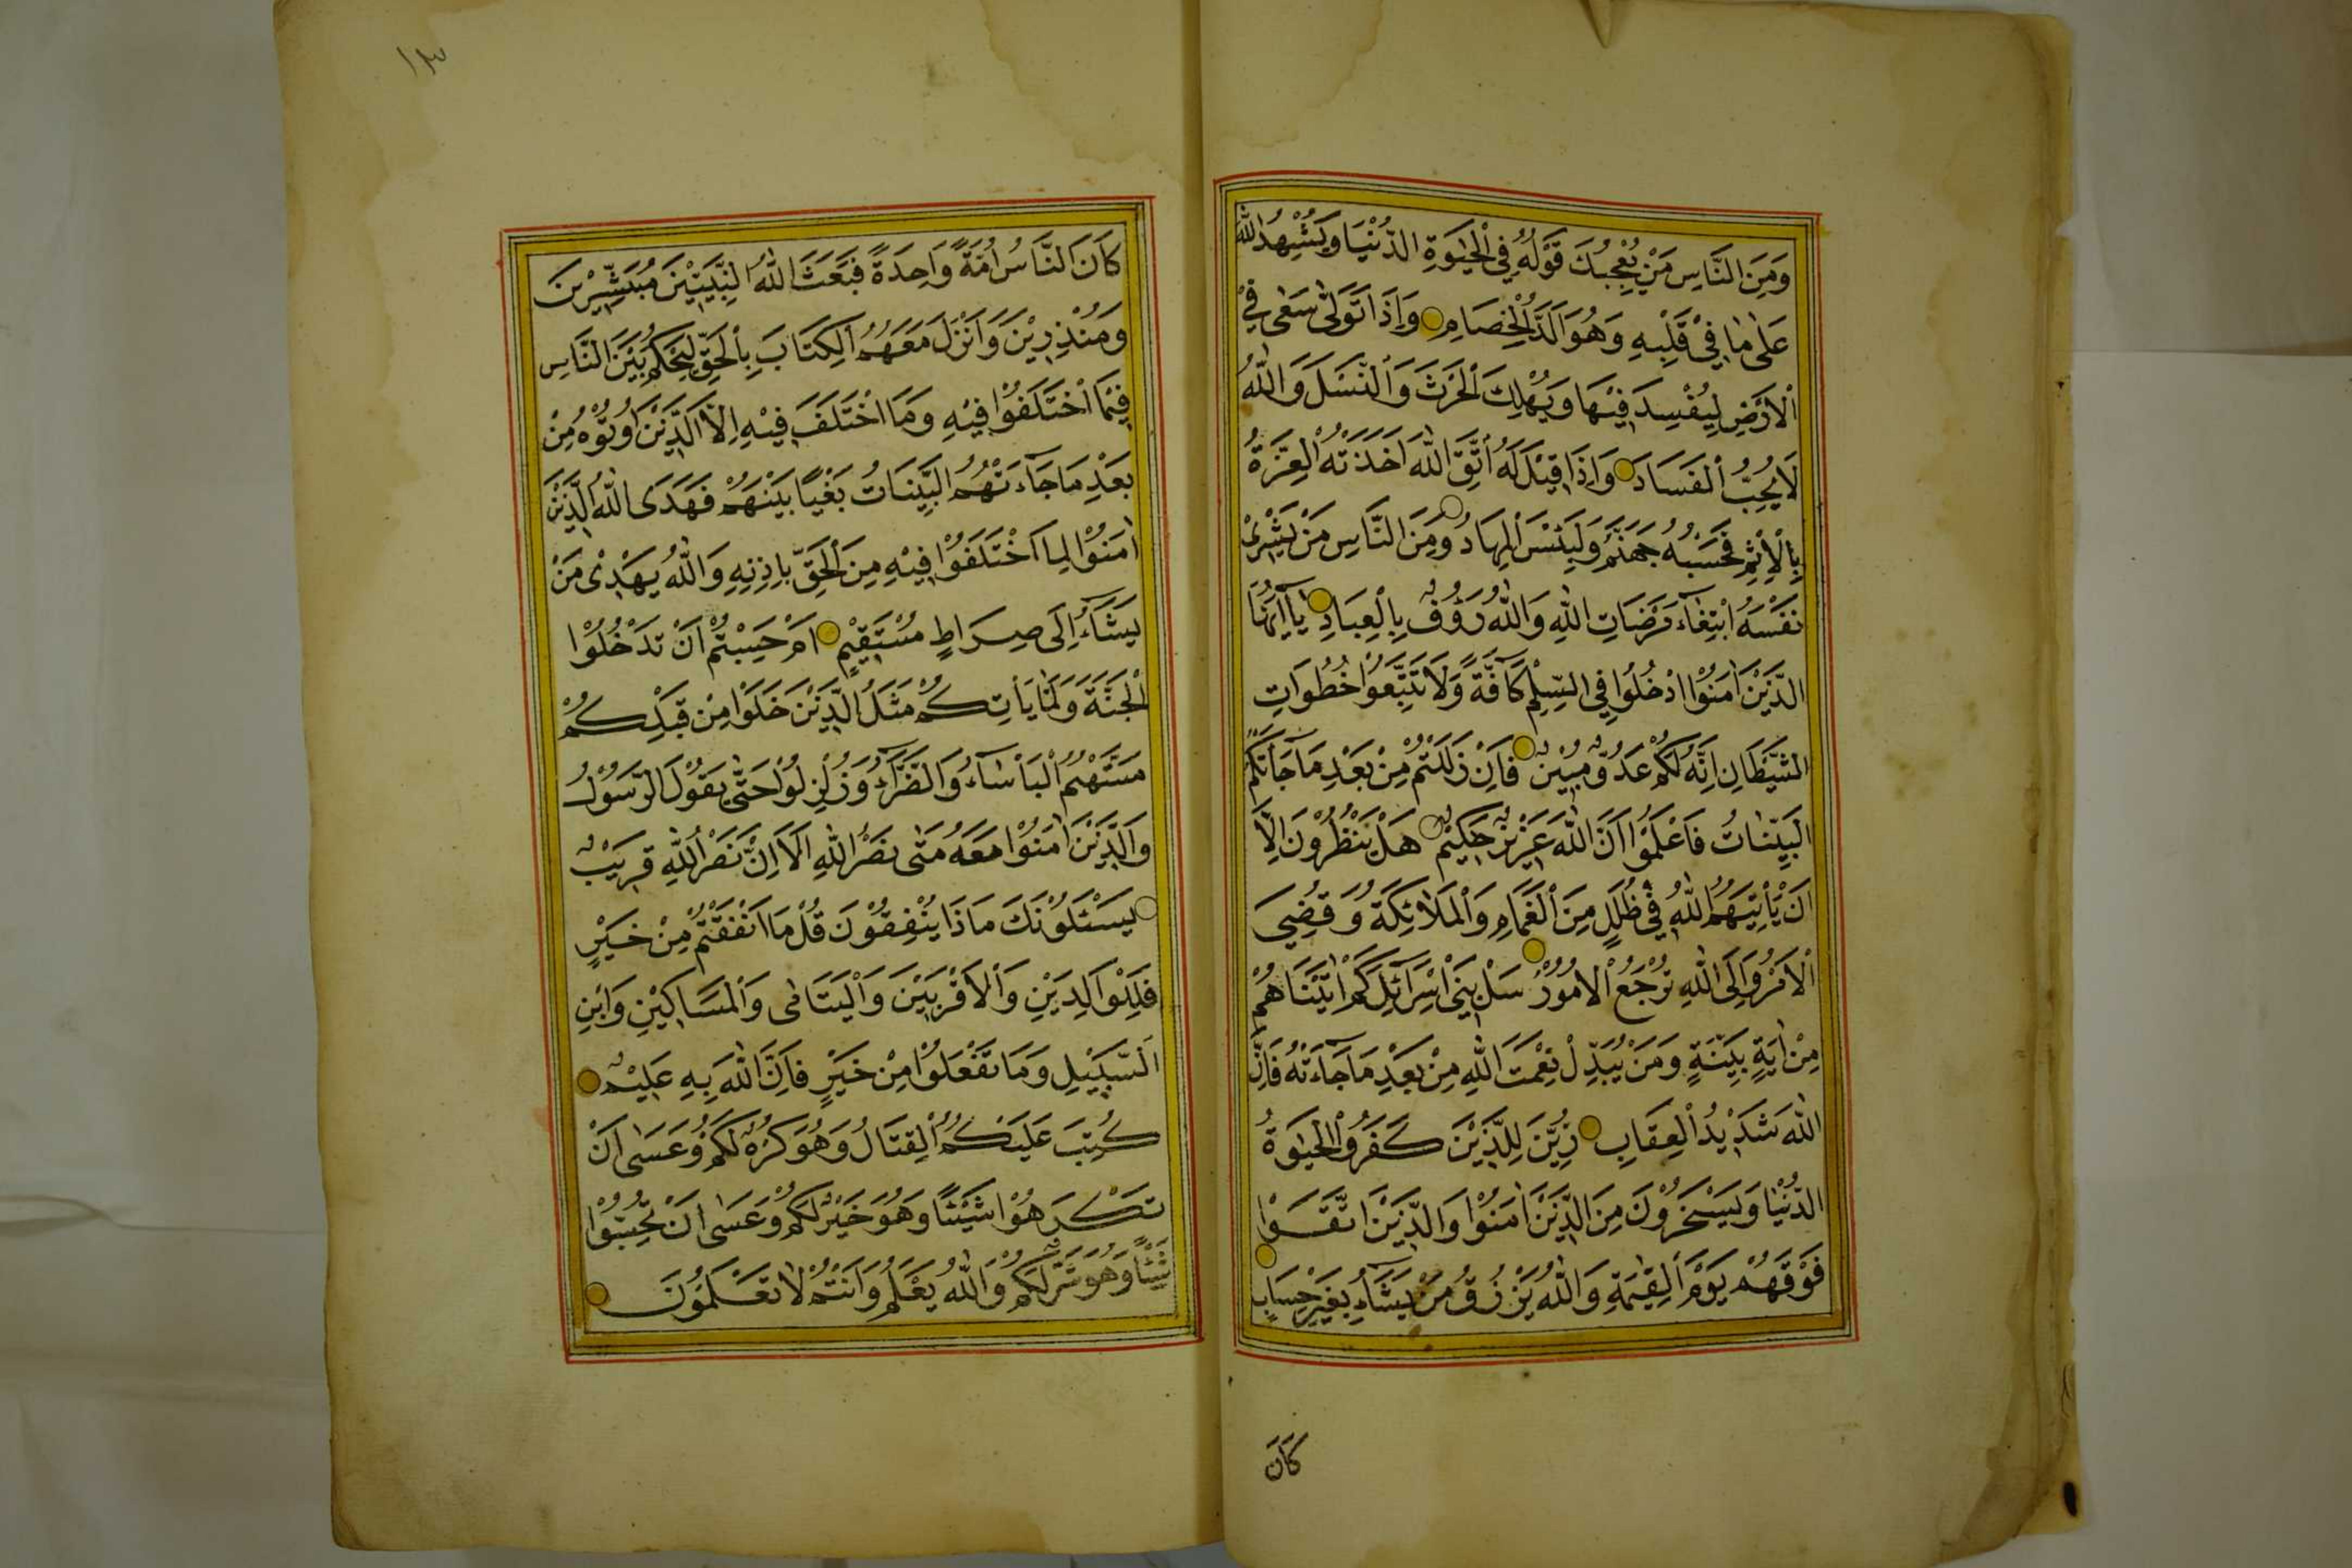 وَمِنَ النَّاسِ مَنْ يُعْجِبُكَ قَوْلُهُ فِي الْحَيٰوةِ الدُّنْيَا وَيُشْهِدُ اللّٰهَ
عَلٰى مَا فِيْ قَلْبِهِ وَهُوَ اَلَدُّ الْخِصَامِ وَاِذَا تَوَلّٰى سَعٰى فِيْ
الْاَرْضِ لِيُفْسِدَ فِيْهَا وَيُهْلِكَ الْحَرْثَ وَالنَّسْلَ وَاللّٰهُ
لَا يُحِبُّ الْفَسَادَ وَاِذَا قِيْلَ لَهُ اتَّقِ اللّٰهَ اَخَذَتْهُ الْعِزَّةُ
بِالْاِثْمِ فَحَسْبُهُ جَهَنَّمُ وَلَبِئْسَ الْمِهَادُ وَمِنَ النَّاسِ مَنْ يَشْرِيْ
نَفْسَهُ ابْتِغَآءَ مَرْضَاتِ اللّٰهِ وَاللّٰهُ رَؤُفٌ بِالْعِبَادِ يَآ اَيُّهَا
الَّذِيْنَ اٰمَنُوْا ادْخُلُوْا فِي السِّلْمِ كَآفَّةً وَلَا تَتَّبِعُوْا خُطُوَاتِ
الشَّيْطَانِ اِنَّهُ لَكُمْ عَدُوٌّ مُبِيْنٌ فَاِنْ زَلَلْتُمْ مِنْ بَعْدِ مَا جَآءَتْكُمُ
الْبَيِّنَاتُ فَاعْلَمُوْا اَنَّ اللّٰهَ عَزِيْزٌ حَكِيْمٌ هَلْ يَنْظُرُوْنَ اِلَّا
اَنْ يَأْتِيَهُمُ اللّٰهُ فِيْ ظُلَلٍ مِنَ الْغَمَامِ وَالْمَلٰٓئِكَةُ وَقُضِيَ
الْاَمْرُ وَاِلَى اللّٰهِ تُرْجَعُ الْاُمُوْرُ سَلْ بَنِيْ اِسْرَآئِلَ كَمْ اٰتَيْنَاهُمْ
مِنْ اٰيَةٍ بَيِّنَةٍ وَمَنْ يُبَدِّلْ نِعْمَتَ اللّٰهِ مِنْ بَعْدِ مَا جَآءَتْهُ فَاِنَّ
اللّٰهَ شَدِيْدُ الْعِقَابِ زُيِّنَ لِلَّذِيْنَ كَفَرُوا الْحَيٰوةُ
الدُّنْيَا وَيَسْخَرُوْنَ مِنَ الَّذِيْنَ اٰمَنُوْا وَالَّذِيْنَ اتَّقَوْا
فَوْقَهُمْ يَوْمَ الْقِيٰمَةِ وَاللّٰهُ يَرْزُقُ مَنْ يَشَآءُ بِغَيْرِ حِسَابٍ
كَانَ
كَانَ النَّاسُ اُمَّةً وَاحِدَةً فَبَعَثَ اللّٰهُ النَّبِيّيْنَ مُبَشِّرِيْنَ
وَمُنْذِرِيْنَ وَاَنْزَلَ مَعَهُمُ الْكِتَابَ بِالْحَقِّ لِيَحْكُمَ بَيْنَ النَّاسِ
فِيْمَا اخْتَلَفُوْا فِيْهِ وَمَا اخْتَلَفَ فِيْهِ اِلَّا الَّذِيْنَ اُوْتُوْهُ مِنْ
بَعْدِ مَا جَآءَتْهُمُ الْبَيِّنَاتُ بَغْيًا بَيْنَهُمْ فَهَدَى اللّٰهُ الَّذِيْنَ
اٰمَنُوْا لِمَا اخْتَلَفُوْا فِيْهِ مِنَ الْحَقِّ بِاِذْنِهِ وَاللّٰهُ يَهْدِيْ مَنْ
يَشَآءُ اِلٰى صِرَاطٍ مُسْتَقِيْمٍ اَمْ حَسِبْتُمْ اَنْ تَدْخُلُوْا
الْجَنَّةَ وَلَمَّا يَأْتِكُمْ مَثَلُ الَّذِيْنَ خَلَوْا مِنْ قَبْلِكُمْ
مَسَّتْهُمُ الْبَأْسَآءُ وَالضَّرَّآءُ وَزُلْزِلُوْا حَتّٰى يَقُوْلَ الرَّسُوْلُ
وَالَّذِيْنَ اٰمَنُوْا مَعَهُ مَتٰى نَصْرُ اللّٰهِ اَلَا اِنَّ نَصْرَ اللّٰهِ قَرِيْبٌ
يَسْئَلُوْنَكَ مَاذَا يُنْفِقُوْنَ قُلْ مَا اَنْفَقْتُمْ مِنْ خَيْرٍ
فَلِلْوَالِدَيْنِ وَالْاَقْرَبِيْنَ وَالْيَتَامٰى وَالْمَسَاكِيْنِ وَابْنِ
السَّبِيْلِ وَمَا تَفْعَلُوْا مِنْ خَيْرٍ فَاِنَّ اللّٰهَ بِهِ عَلِيْمٌ
كُتِبَ عَلَيْكُمُ الْقِتَالُ وَهُوَ كُرْهٌ لَكُمْ وَعَسٰى اَنْ
تَكْرَهُوْا شَيْئًا وَهُوَ خَيْرٌ لَكُمْ وَعَسٰى اَنْ تُحِبُّوْا
شَيْئًا وَهُوَ شَرٌّ لَكُمْ وَاللّٰهُ يَعْلَمُ وَاَنْتُمْ لَا تَعْلَمُوْنَ